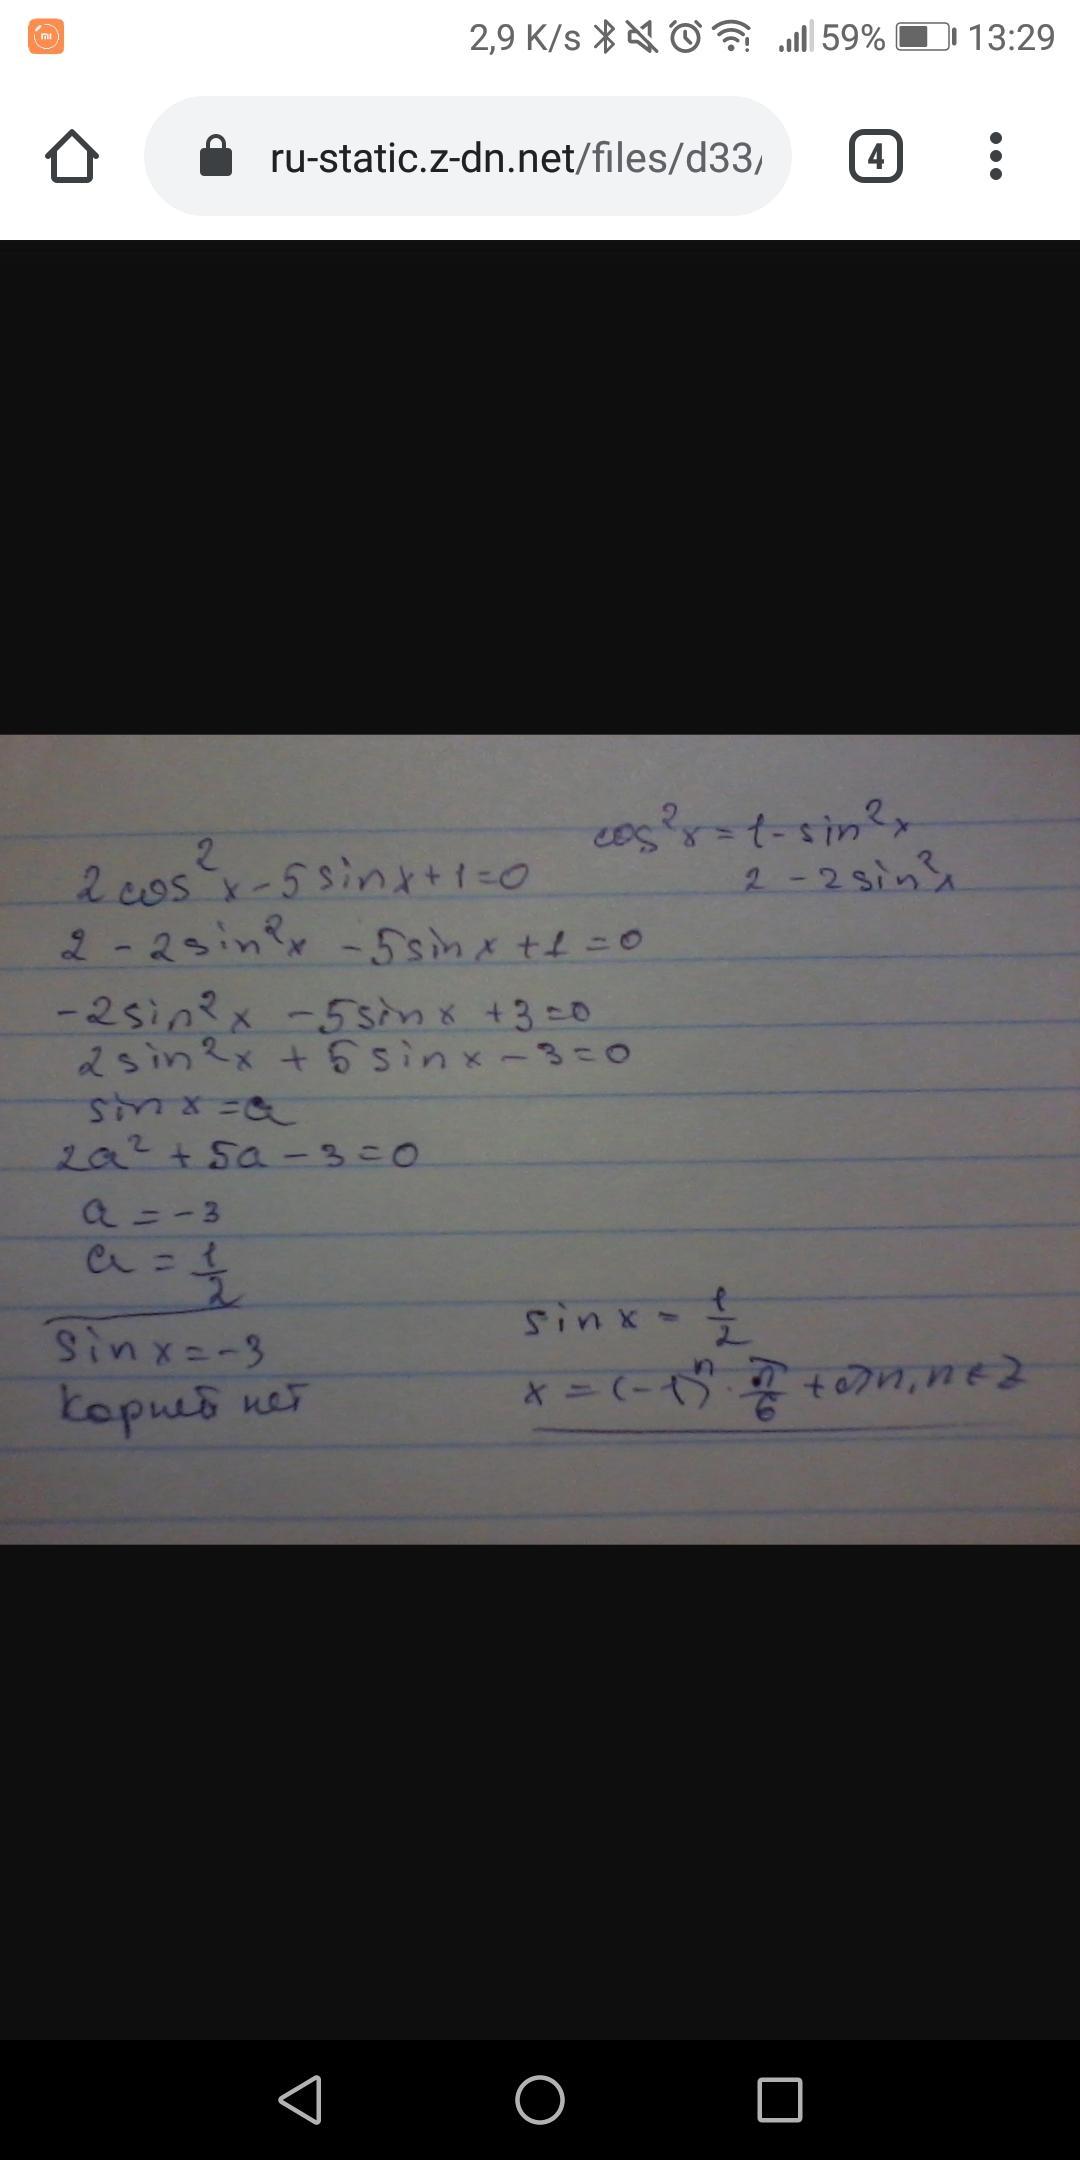 2,9 K/s 59% 13:29
ru-static.z-dn.net/files/d33/ 4
cos²x = 1 - sin²x
2 - 2sin²x
2cos²x - 5sinx + 1 = 0
2 - 2sin²x - 5sinx + 1 = 0
-2sin²x - 5sinx + 3 = 0
2sin²x + 5sinx - 3 = 0
sin x = a
2a² + 5a - 3 = 0
a = -3
a = 1/2
sin x = -3
Корней нет
sin x = 1/2
x = (-1)ⁿ · π/6 + πn, n ∈ Z